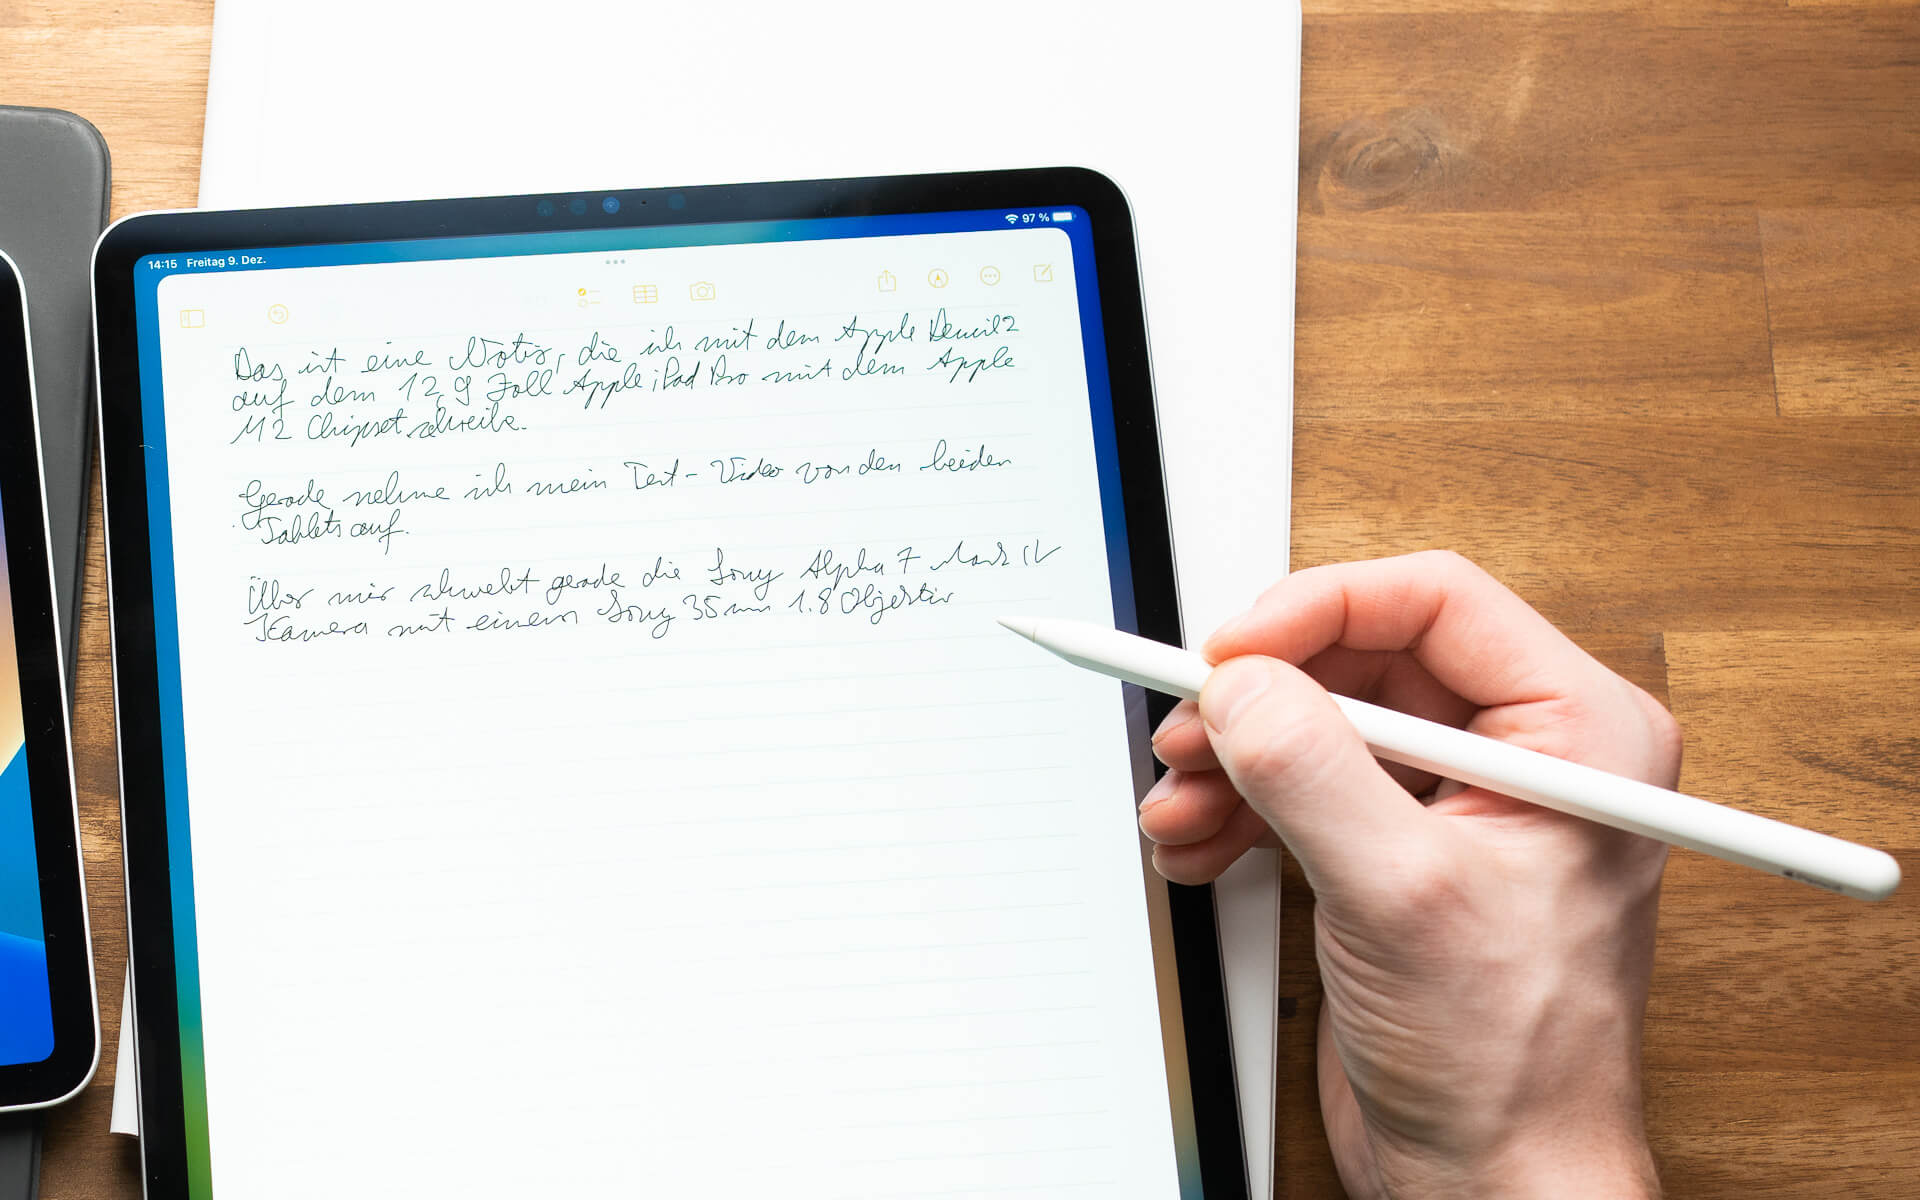 14:15 Freitag 9. Dez.
97 %
Das ist eine Notiz, die ich mit dem Apple Pencil 2
auf dem 12,9 Zoll Apple iPad Pro mit dem Apple
M2 Chipset schreibe.
Gerade nehme ich mein Test-Video von den beiden
Tablets auf.
Über mir schwebt gerade die Sony Alpha 7 Mark IV
Kamera mit einem Sony 35mm 1.8 Objektiv